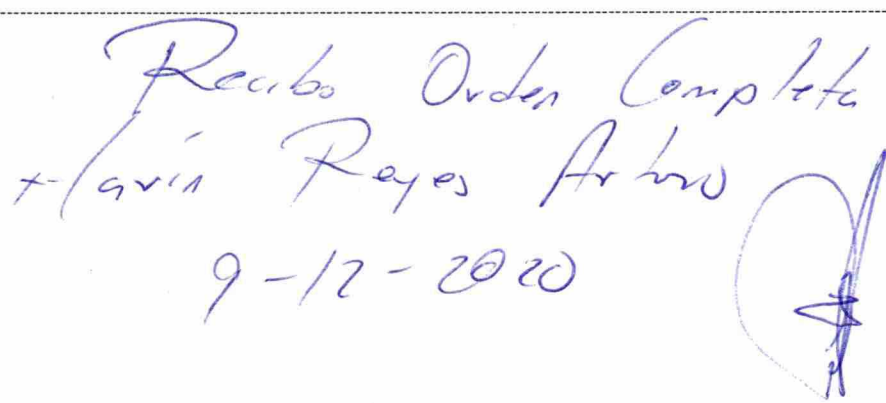 Recibo Orden Completa
Reyes Arturo
9-12-2020